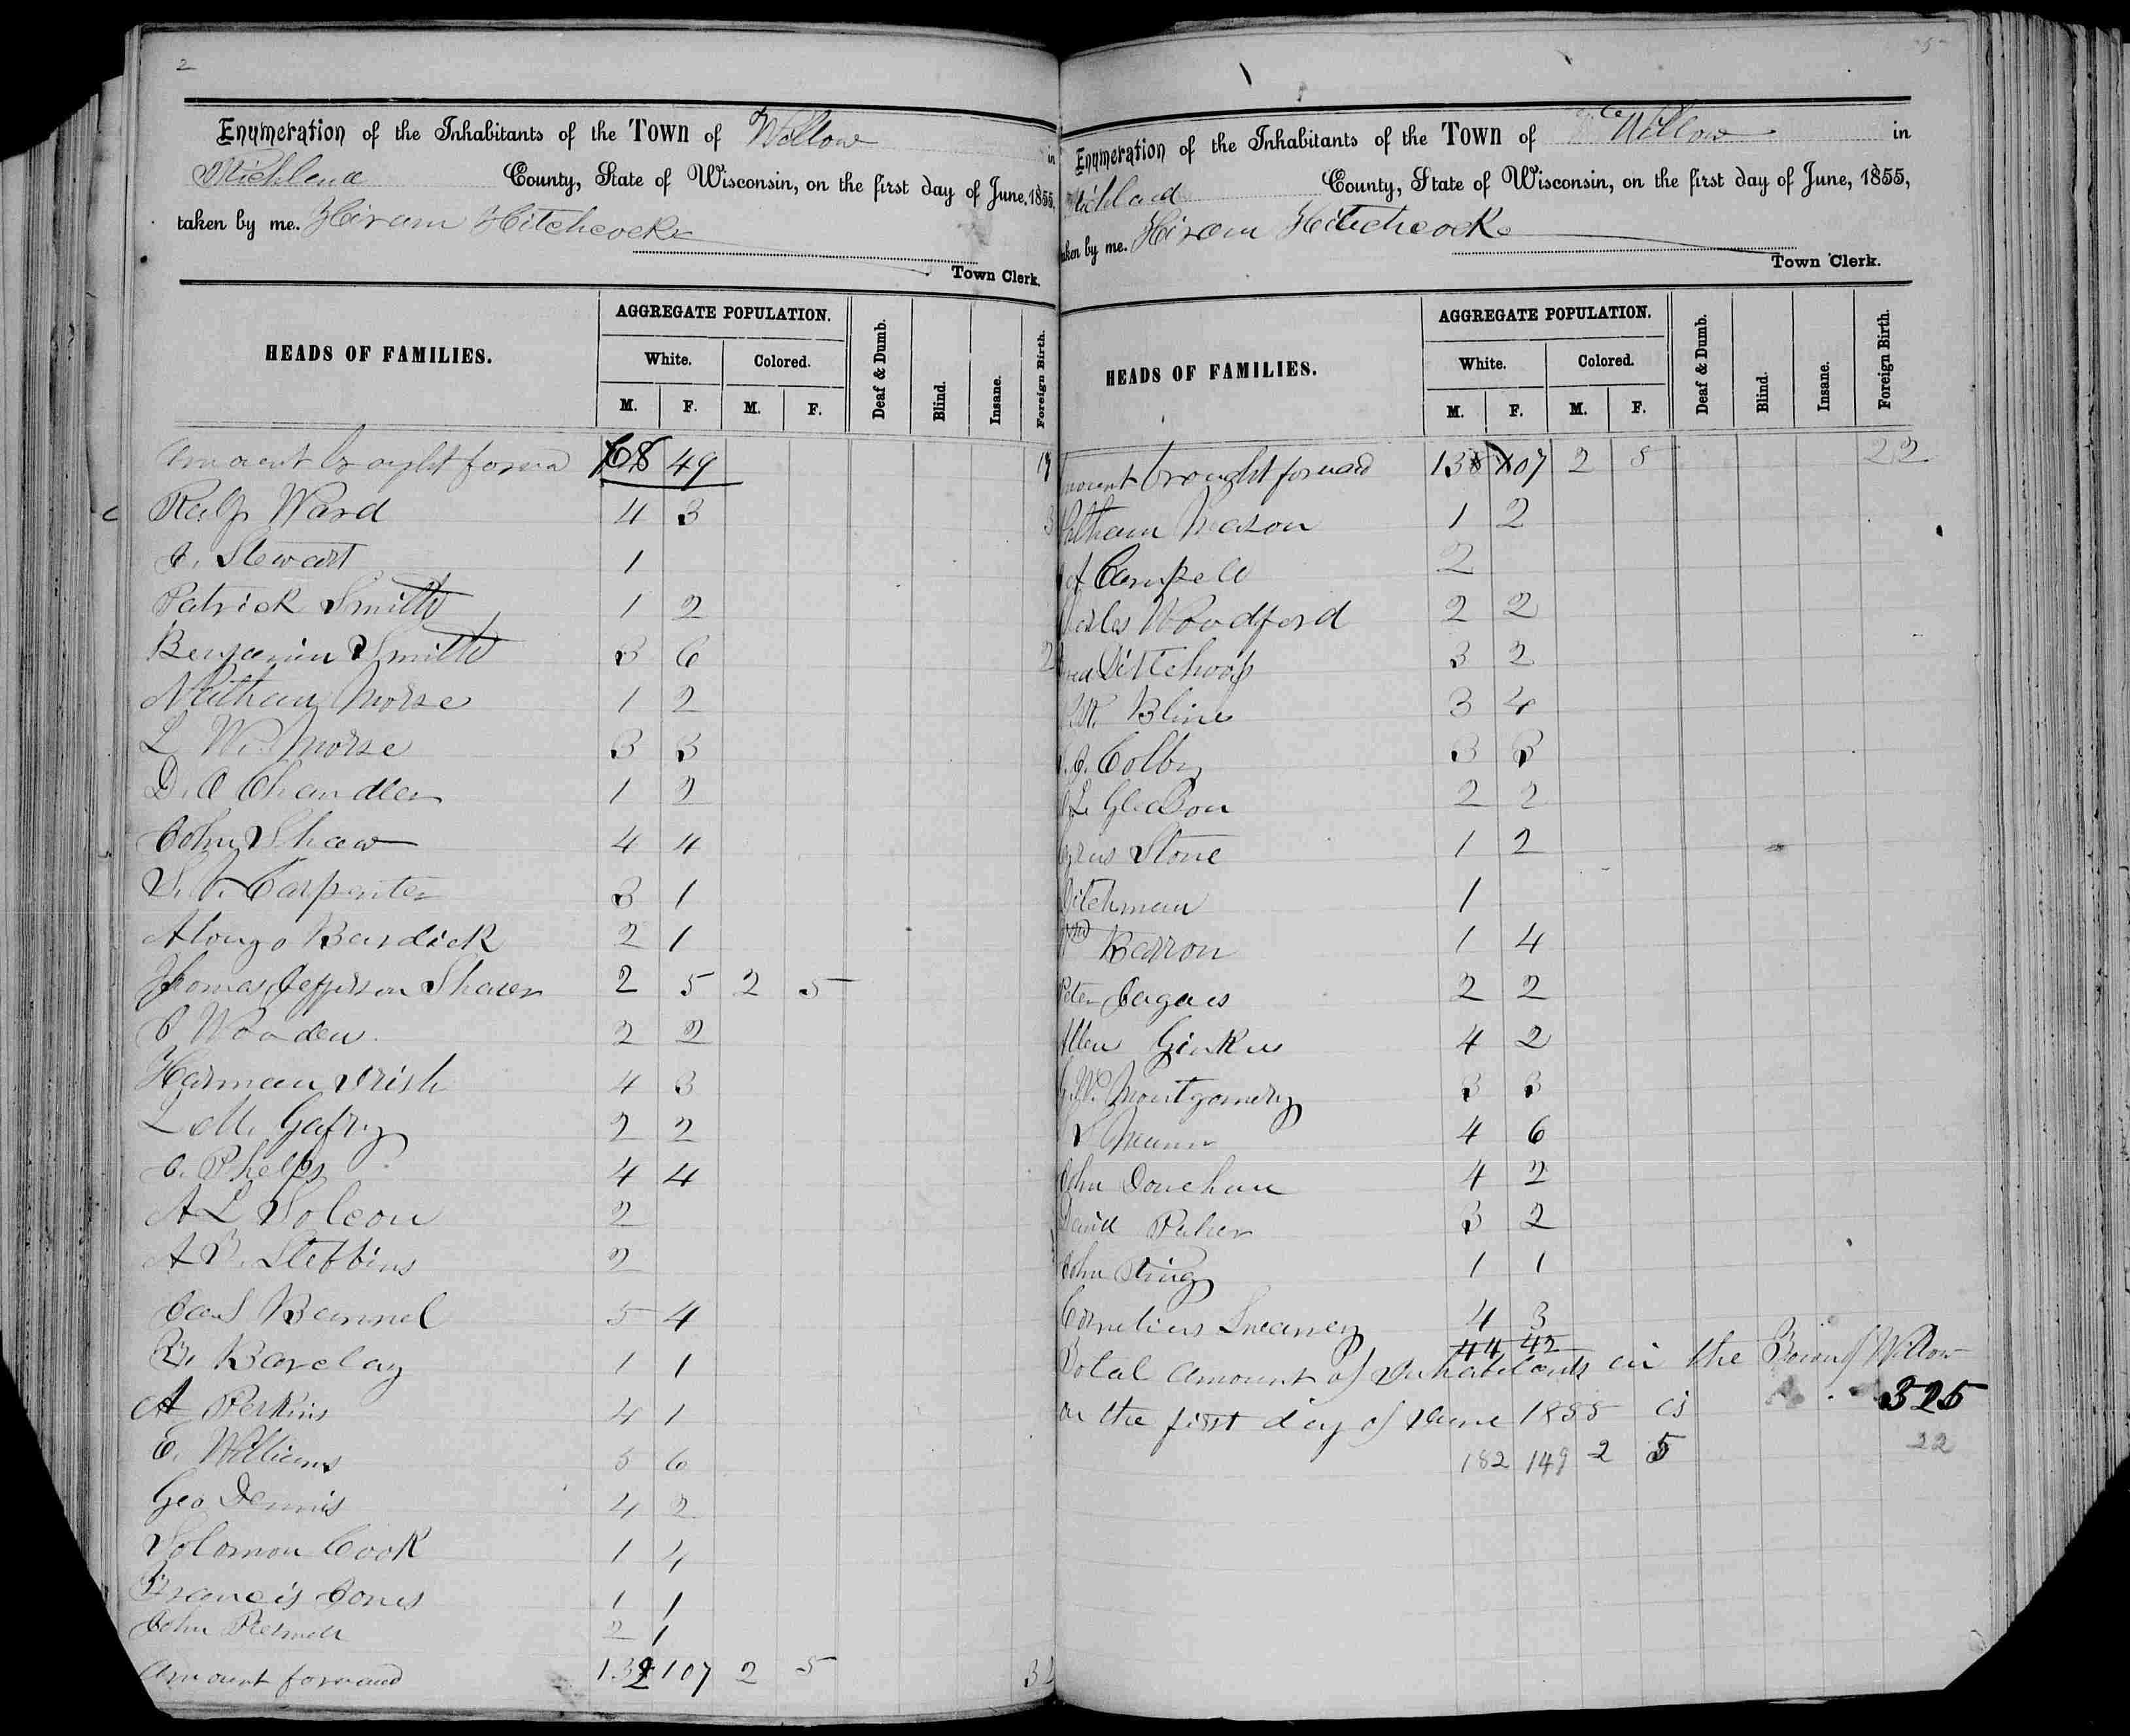 2
Enumeration of the Inhabitants of the Town of Willow in
Richland County, State of Wisconsin, on the first day of June, 1855,
taken by me. Hiram Hitchcock
Town Clerk.
HEADS OF FAMILIES.
AGGREGATE POPULATION.
White. Colored.
M. F. M. F. Deaf & Dumb. Blind. Insane. Foreign Birth.
Amount brought forwa 68 49
Ralp Ward 4 3 3
J. Stewart 1
Patrick Smith 1 2
Benjamin Smith 3 6 2
Nathan Morse 1 2
L. W. Morse 3 3
D. O Chandler 1 2
John Shaw 4 4
S. V. Carpenter 3 1
Alonzo Burdick 2 1
Thomas Jefferson Shaver 2 5 2 5
J Wooden 2 2
Harman Irish 4 3
L M. 2 2
J. Phelps 4 4
A L 2
A B. Stebbins 2
5 4
B. Barclay 1 1
A Perkins 4 1
E. Williams 5 6
Geo Dennis 4 2
Solomon Cook 1 4
Francis Jones 1 1
John 2 1
Amount forward 132 107 2 5
5
Enumeration of the Inhabitants of the Town of Willow in
Richland County, State of Wisconsin, on the first day of June, 1855,
taken by me. Hiram Hitchcock
Town Clerk.
HEADS OF FAMILIES.
AGGREGATE POPULATION.
White. Colored.
M. F. M. F. Deaf & Dumb. Blind. Insane. Foreign Birth.
amount brought forward 138 107 2 5 22
Mason 1 2
Campell 2
Charles Woodford 2 2
3 2
Bline 3 4
J. Colby 3 3
L. Gleason 2 2
Cyrus Stone 1 2
Ditchman 1
Barron 1 4
Peter 2 2
Allen 4 2
G. W. Montgomery 3 3
Mann 4 6
John 4 2
David 3 2
John 1 1
Cornelius Sweaney 4 3
44 42
Total amount of Inhabitants in the Town of Willow
on the first day of June 1855 is 325
182 149 2 5 22